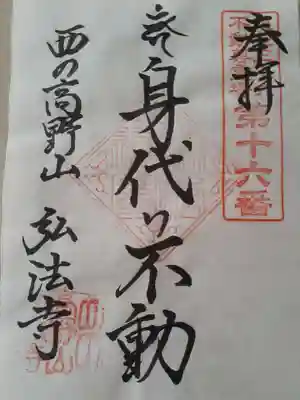 奉拝
第十六番
身代り不動
西の高野山
弘法寺